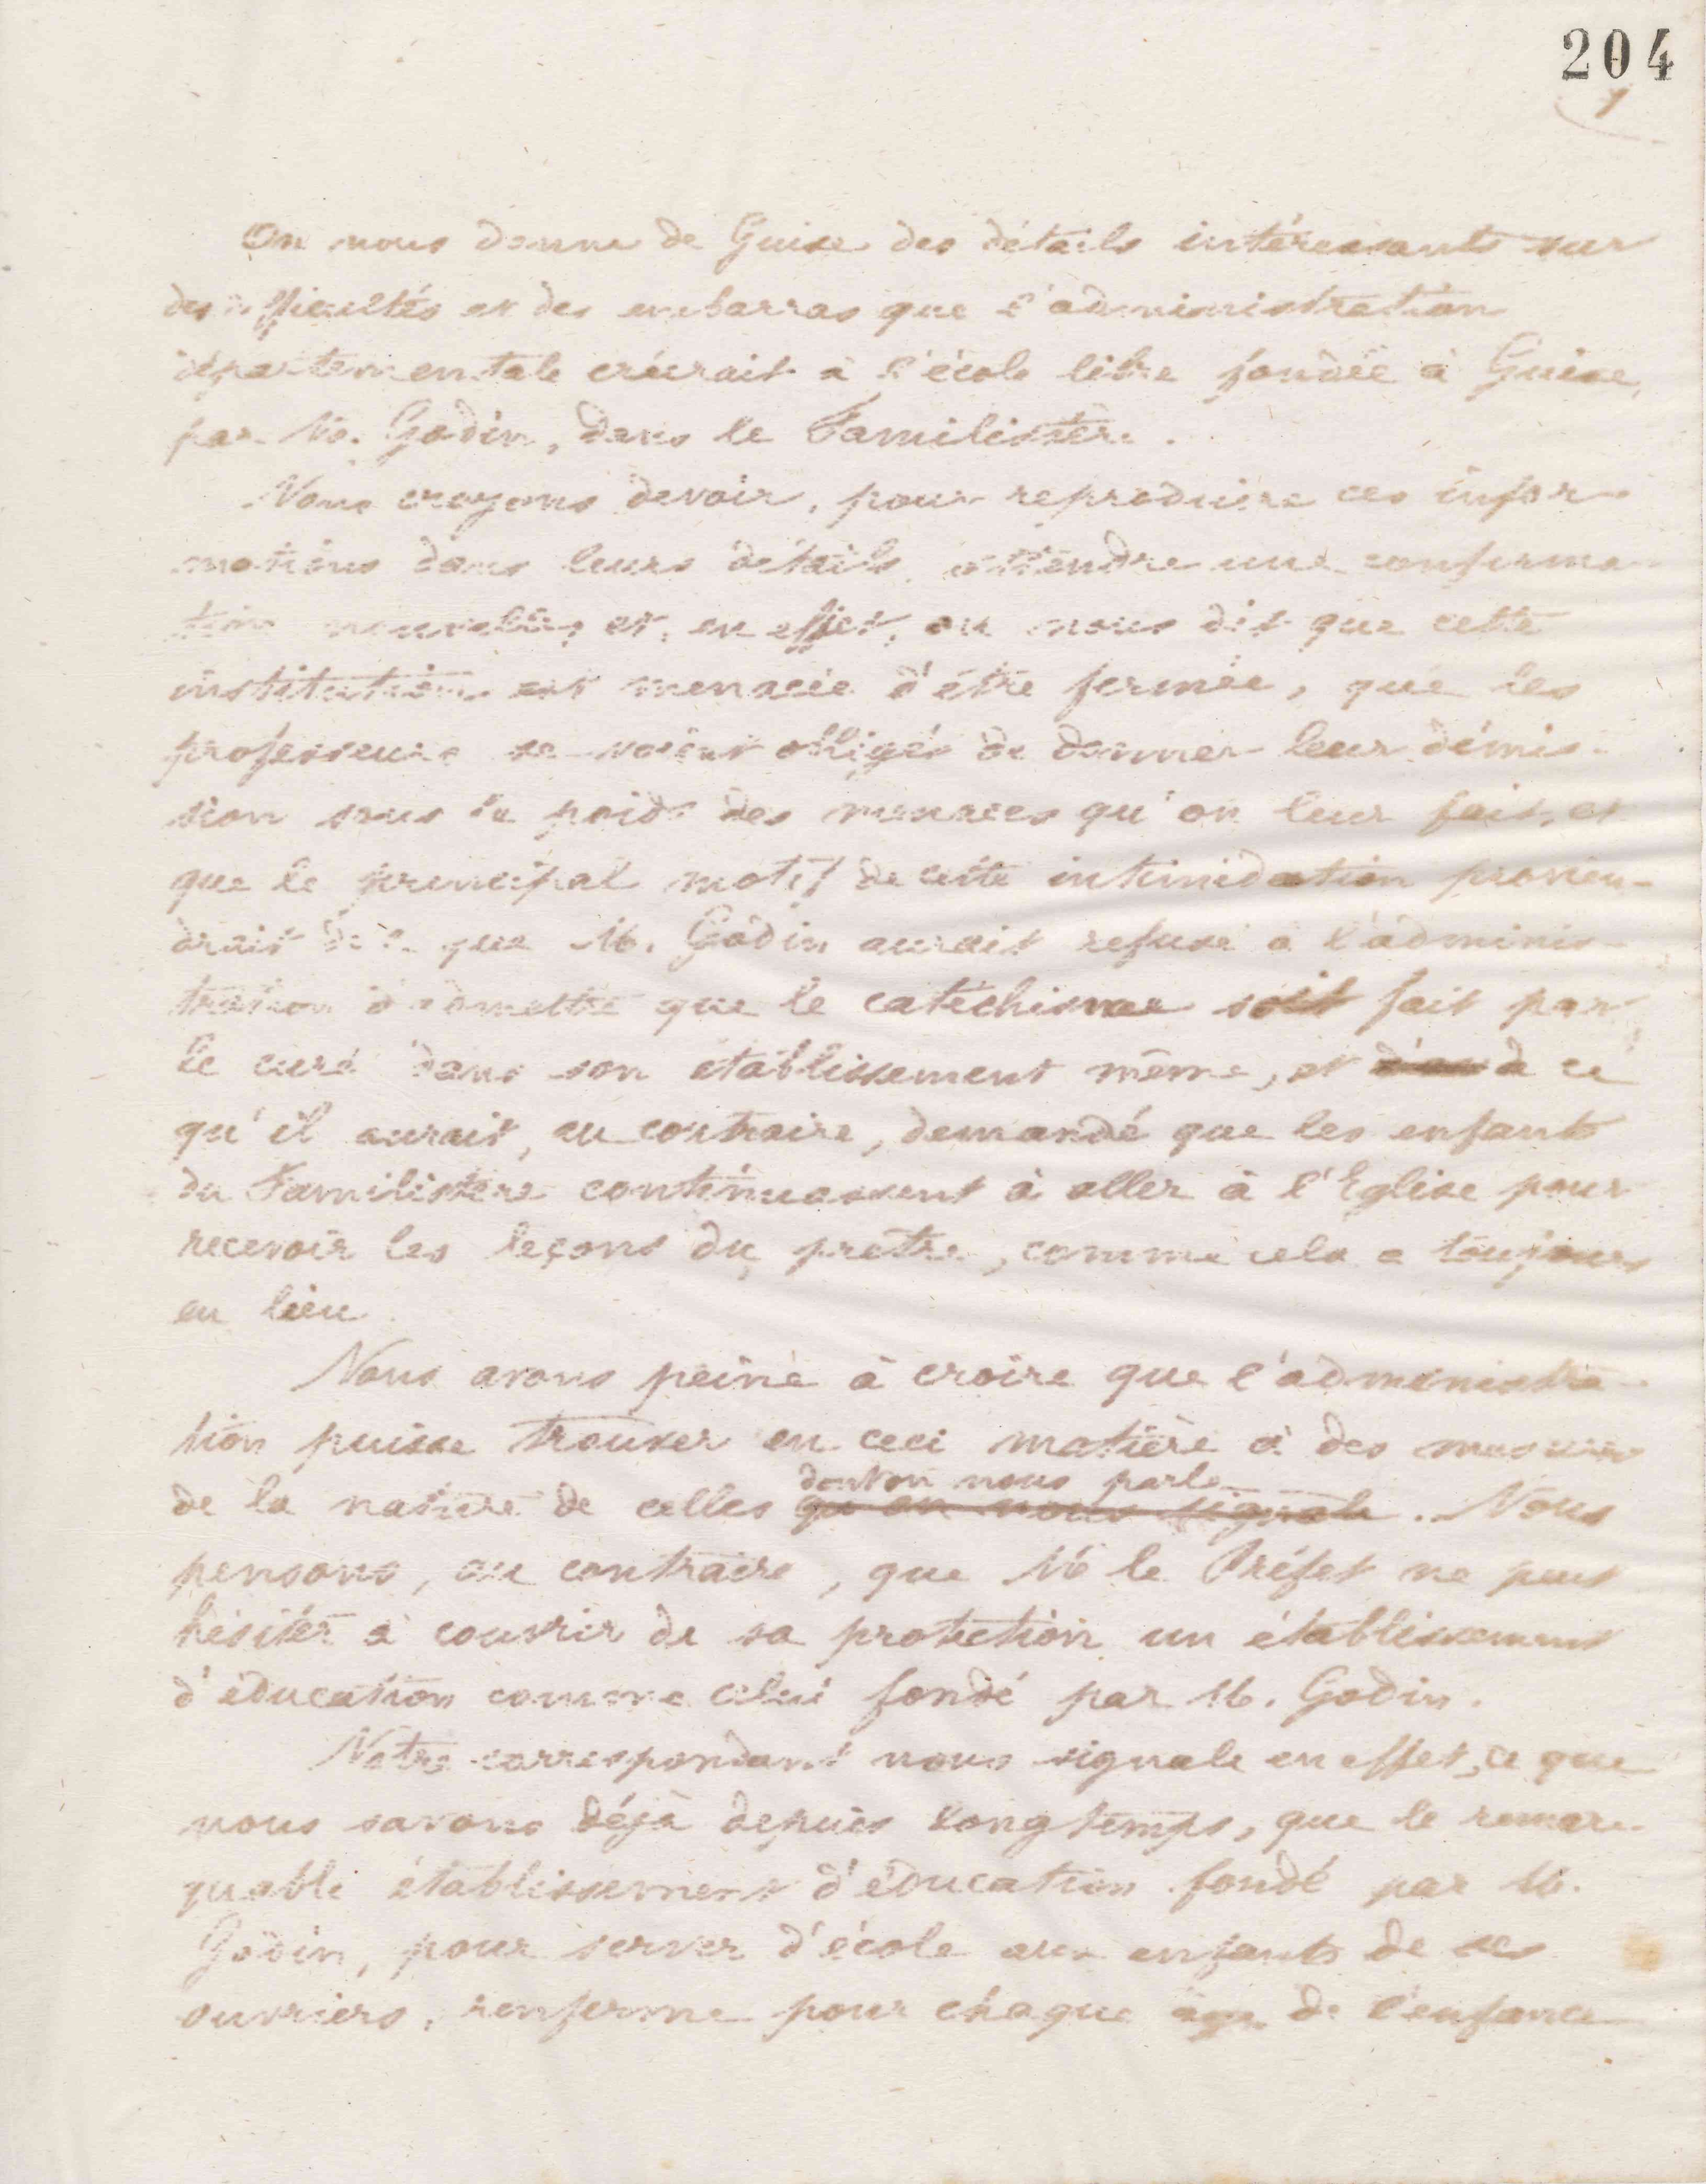 204
1
On nous donne de Guise des détails intéressants sur
des difficultés et des embarras que l'administration
départementale créerait à l'école libre fondée à Guise,
par M. Godin, dans le Familistère.
Nous croyons devoir, pour reproduire ces infor-
mations dans leurs détails, attendre une confirma-
tion nouvelle; et, en effet, on nous dit que cette
institution est menacée d'être fermée, que les
professeurs se voient obligés de donner leur démis-
sion sous le poids des menaces qu'on leur fait, et
que le principal motif de cette intimidation provien-
drait de ce que M. Godin aurait refusé à l'adminis-
tration d'admettre que le catéchisme soit fait par
le curé dans son établissement même, et à ce
qu'il aurait, au contraire, demandé que les enfants
du Familistère continuassent à aller à l'Eglise pour
recevoir les leçons du prêtre, comme cela a toujours
eu lieu.
Nous avons peine à croire que l'administra-
tion puisse trouver en ceci matière à des mesures
dont on nous parle
de la nature de celles qu'on nous signale. Nous
pensons, au contraire, que M le Préfet ne peut
hésiter à couvrir de sa protection un établissement
d'éducation comme celui fondé par M. Godin.
Notre correspondant nous signale en effet, ce que
nous savons déjà depuis longtemps, que le remar-
quable établissement d'éducation fondé par M.
Godin, pour servir d'école aux enfants de ses
ouvriers, renferme pour chaque âge de l'enfance